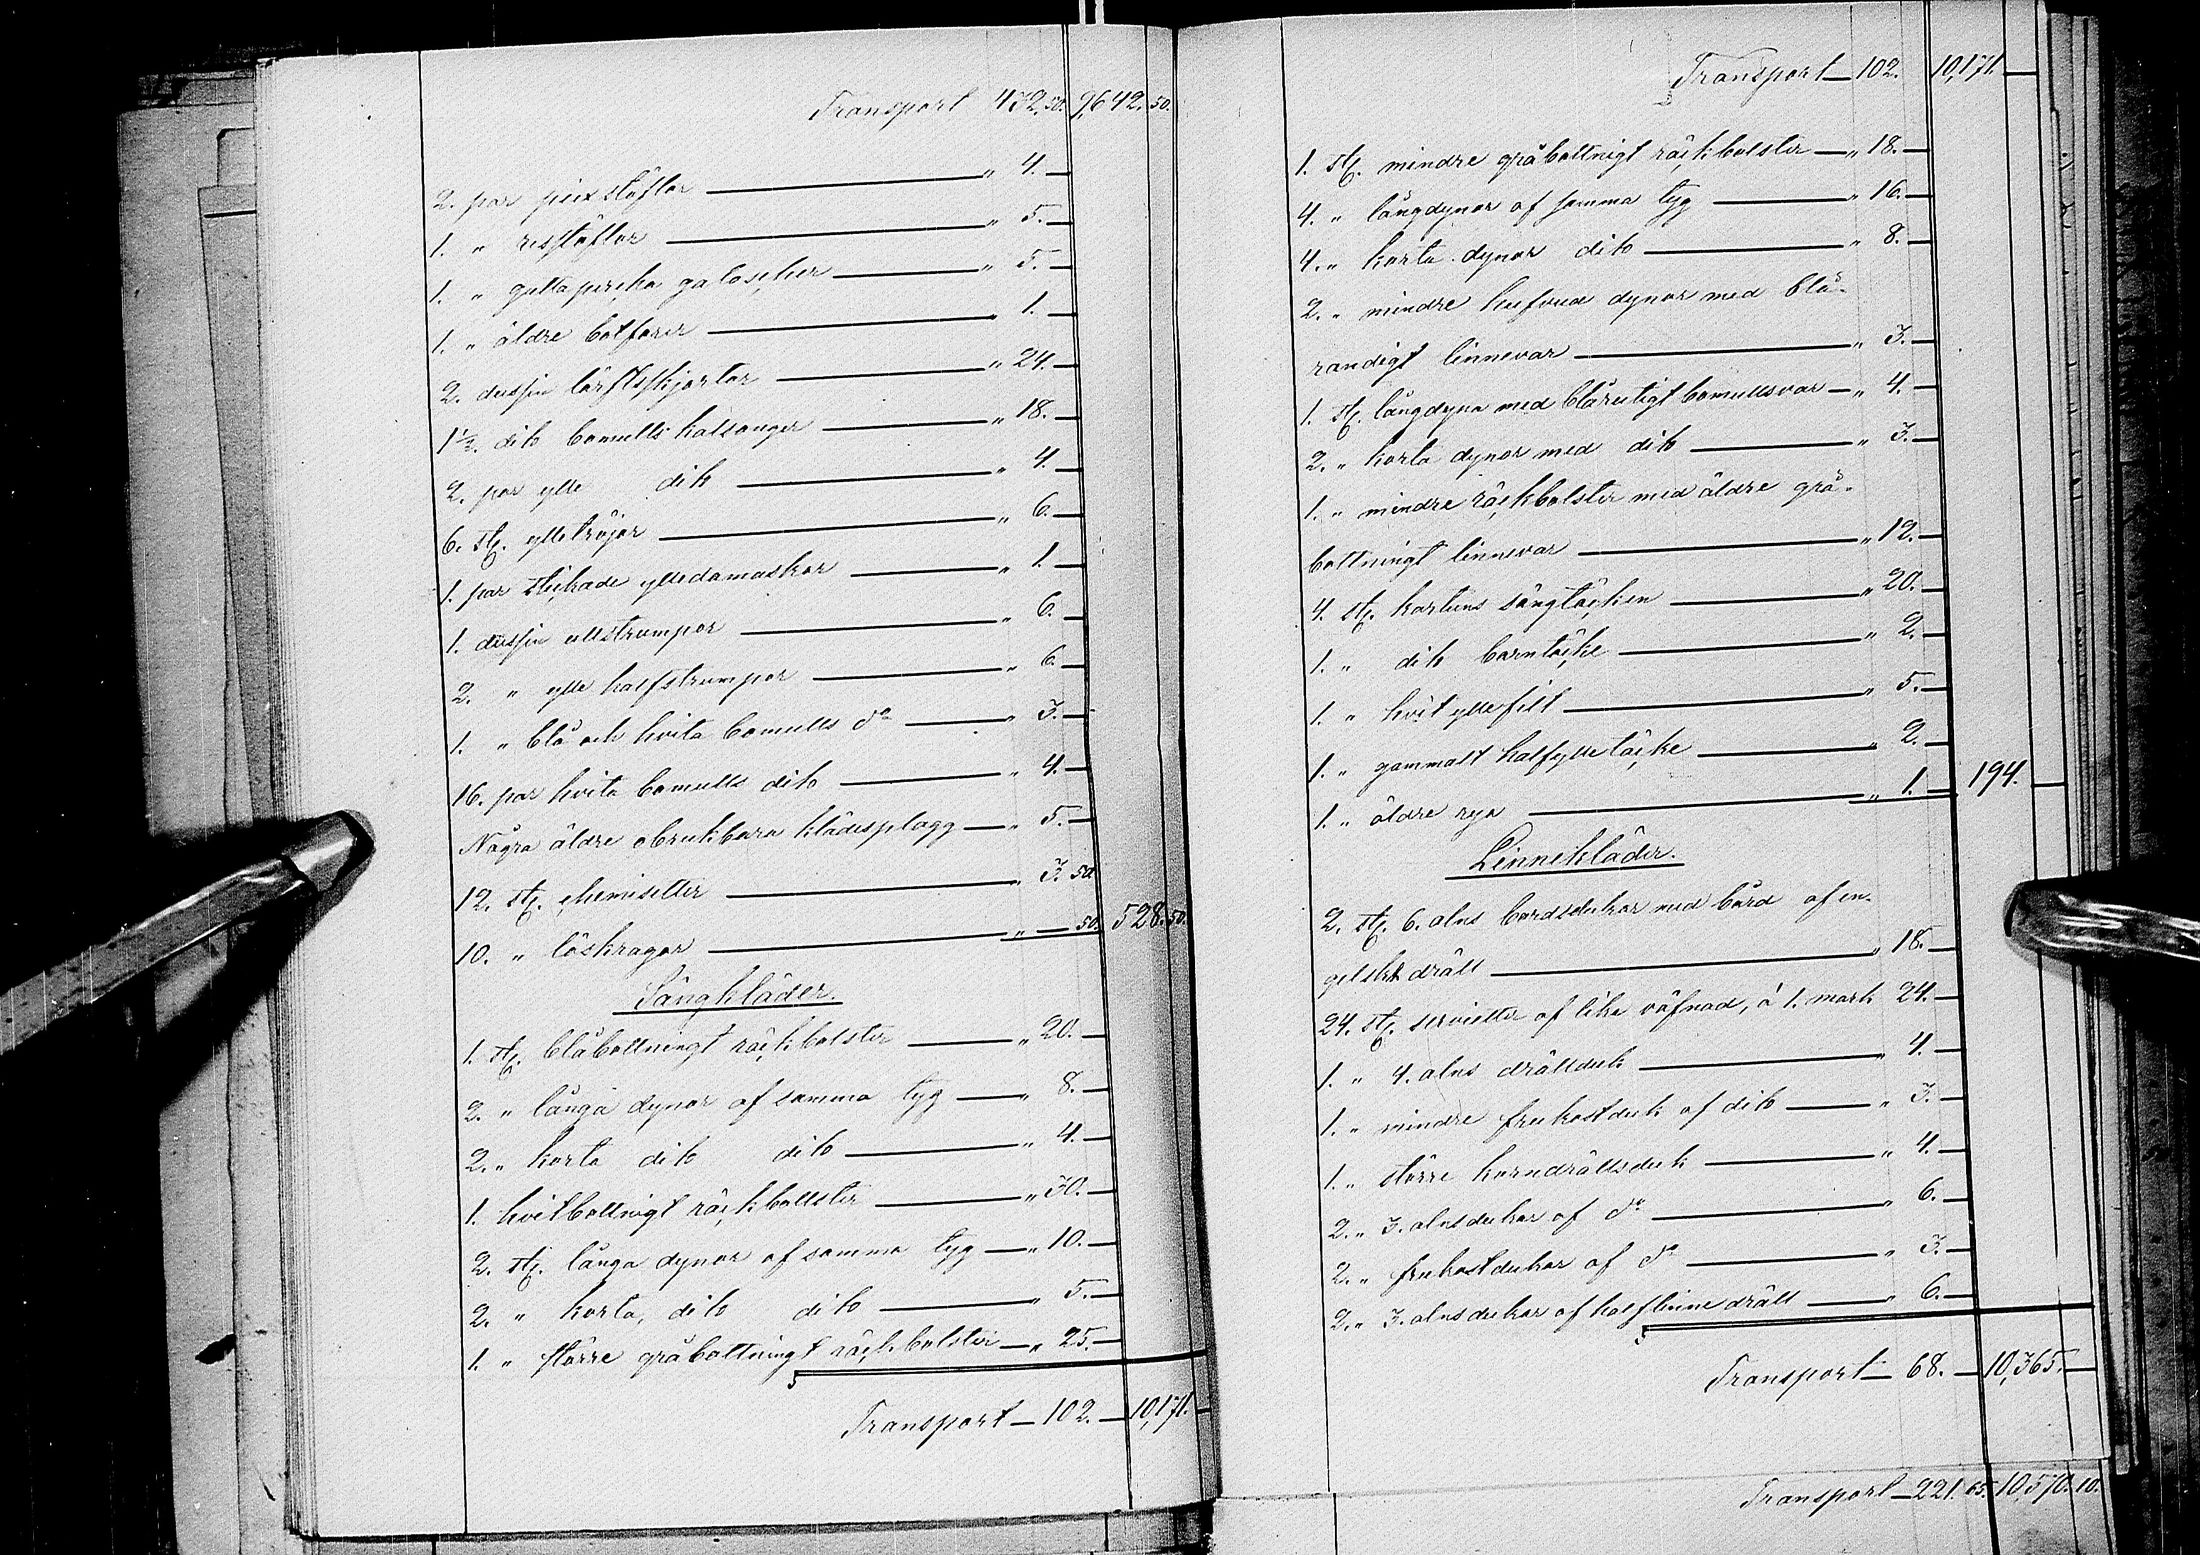 Transport 432.50. 9,642.50.
2. par pixstöflor — " 4. —
1. " resstöflor — " 5. —
1. " guttapercka galoscher — " 5. —
1. " äldre botforer — " 1. —
2. dussin lärftsskjortor — " 24. —
1½. dito bomulls kalsonger — " 18. —
2. par ylle dito — " 4. —
6. st. ylletröjor — " 6. —
1. par stickade ylledamasker — " 1. —
1. dussin ullstrumpor — " 6. —
2. " ylle halfstrumpor — " 6. —
1. " blå och hvita bomulls do — " 3. —
16. par hvita bomulls dito — " 4. —
Några äldre obrukbara klädesplagg — " 5. —
12. st. chemisetter — " 3.50.
10. " löskragar — " — 50. 528.50.
Sängkläder.
1. st. blåbottningt räckbolster — " 20. —
2. " långa dynor af samma tyg — " 8. —
2. " korta dito dito — " 4. —
1. hvitbottnigt räckbollster — " 30. —
2. st. långa dynor af samma tyg — " 10. —
2. " korta, dito dito — " 5. —
1. " större gråbottningt räckbolster — " 25. —
Transport — 102. — 10,171. —
Transport — 102. 10,171. —
1. st. mindre gråbottnigt räckbolster — " 18. —
4. " långdynor af samma tyg — " 16. —
4. " korta dynor dito — " 8. —
2. " mindre hufvud dynor med blå-
randigt linnevar — " 3. —
1. st. långdyna med blårutigt bomullsvar — " 4. —
2. " korta dynor med dito — " 3. —
1. " mindre räckbolster med äldre grå-
bottningt linnevar — " 12. —
4. st. kartuns sängtäcken — " 20. —
1. " dito barntäcke — " 2. —
1. " hvit ylle filt — " 5. —
1. " gammalt halfylletäcke — " 2. —
1. " äldre rya — " 1. — 194. —
Linnekläder.
2. st. 6. alns bordsdukar med bård af en-
gelskt dräll — " 18. —
24. st. servietter af lika väfnad, á 1. mark 24. —
1. " 4. alns drällduk — " 4. —
1. " mindre frukostduk af dito — " 3. —
1. " större korndrällsduk — " 4. —
2. " 3. alnsdukar af do — " 6. —
2. " frukostdukar af do — " 3. —
2. " 3. alnsdukar af halflinne dräll — " 6. —
Transport — 68. — 10,365. —
Transport — 221.65. 10,570.10.